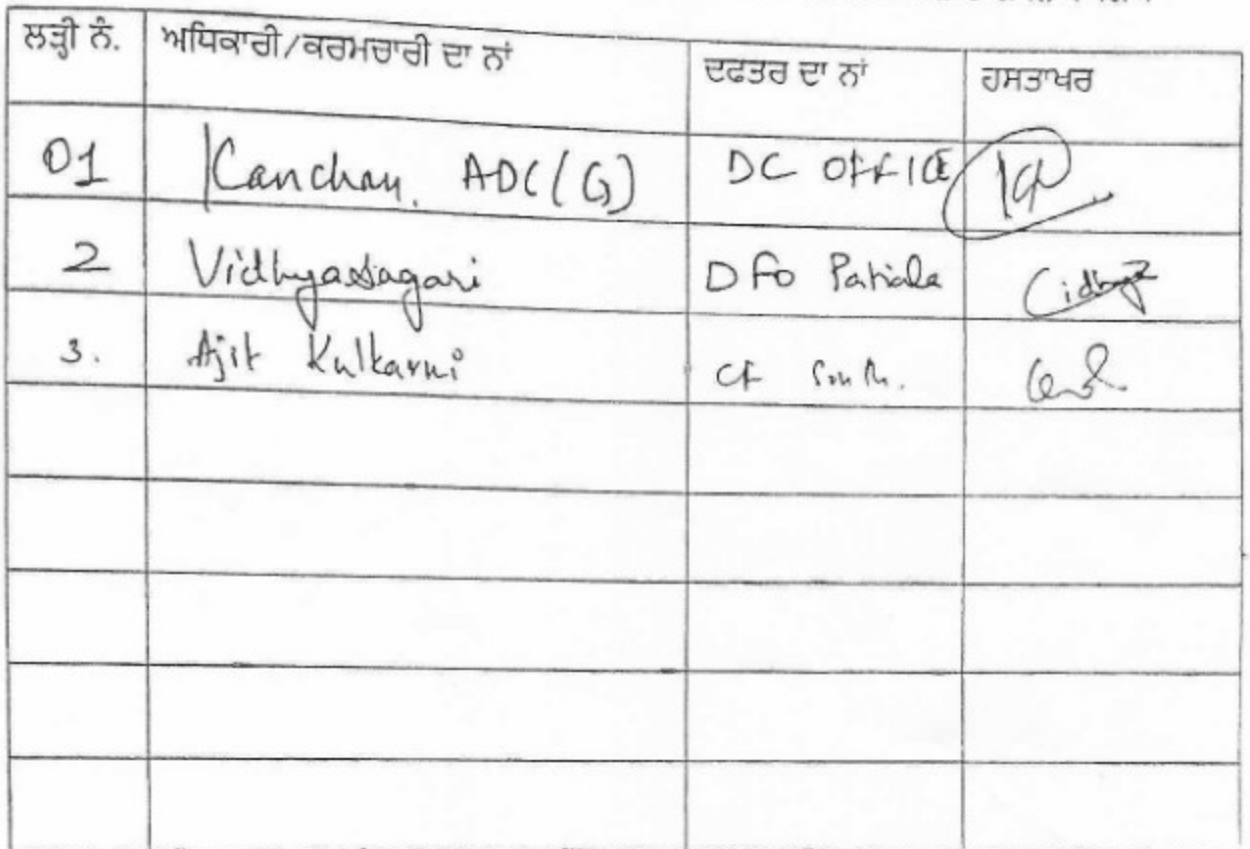 ਲੜੀ ਨੰ. ਅਧਿਕਾਰੀ/ਕਰਮਚਾਰੀ ਦਾ ਨਾਂ ਦਫਤਰ ਦਾ ਨਾਂ ਹਸਤਾਖਰ
01 Kanchan. ADC(G) DC OFFICE
2 Vidhyasagari DFO Patiala
3. Ajit Kulkarni CF South.